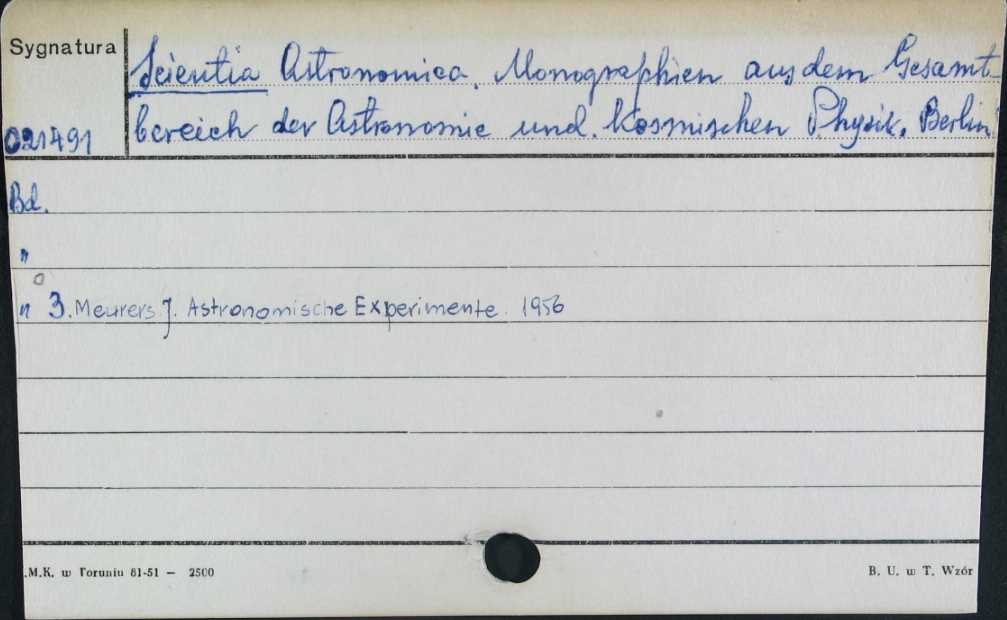 Sygnatura
Scientia Astronomica. Monographien aus dem Gesamt-
021491
bereich der Astronomie und. kosmischen Physik. Berlin
Bd.
"
" 3. Meurers J. Astronomische Experimente. 1956
.M.K. w Toruniu 81-51 — 2500
B. U. w T. Wzór